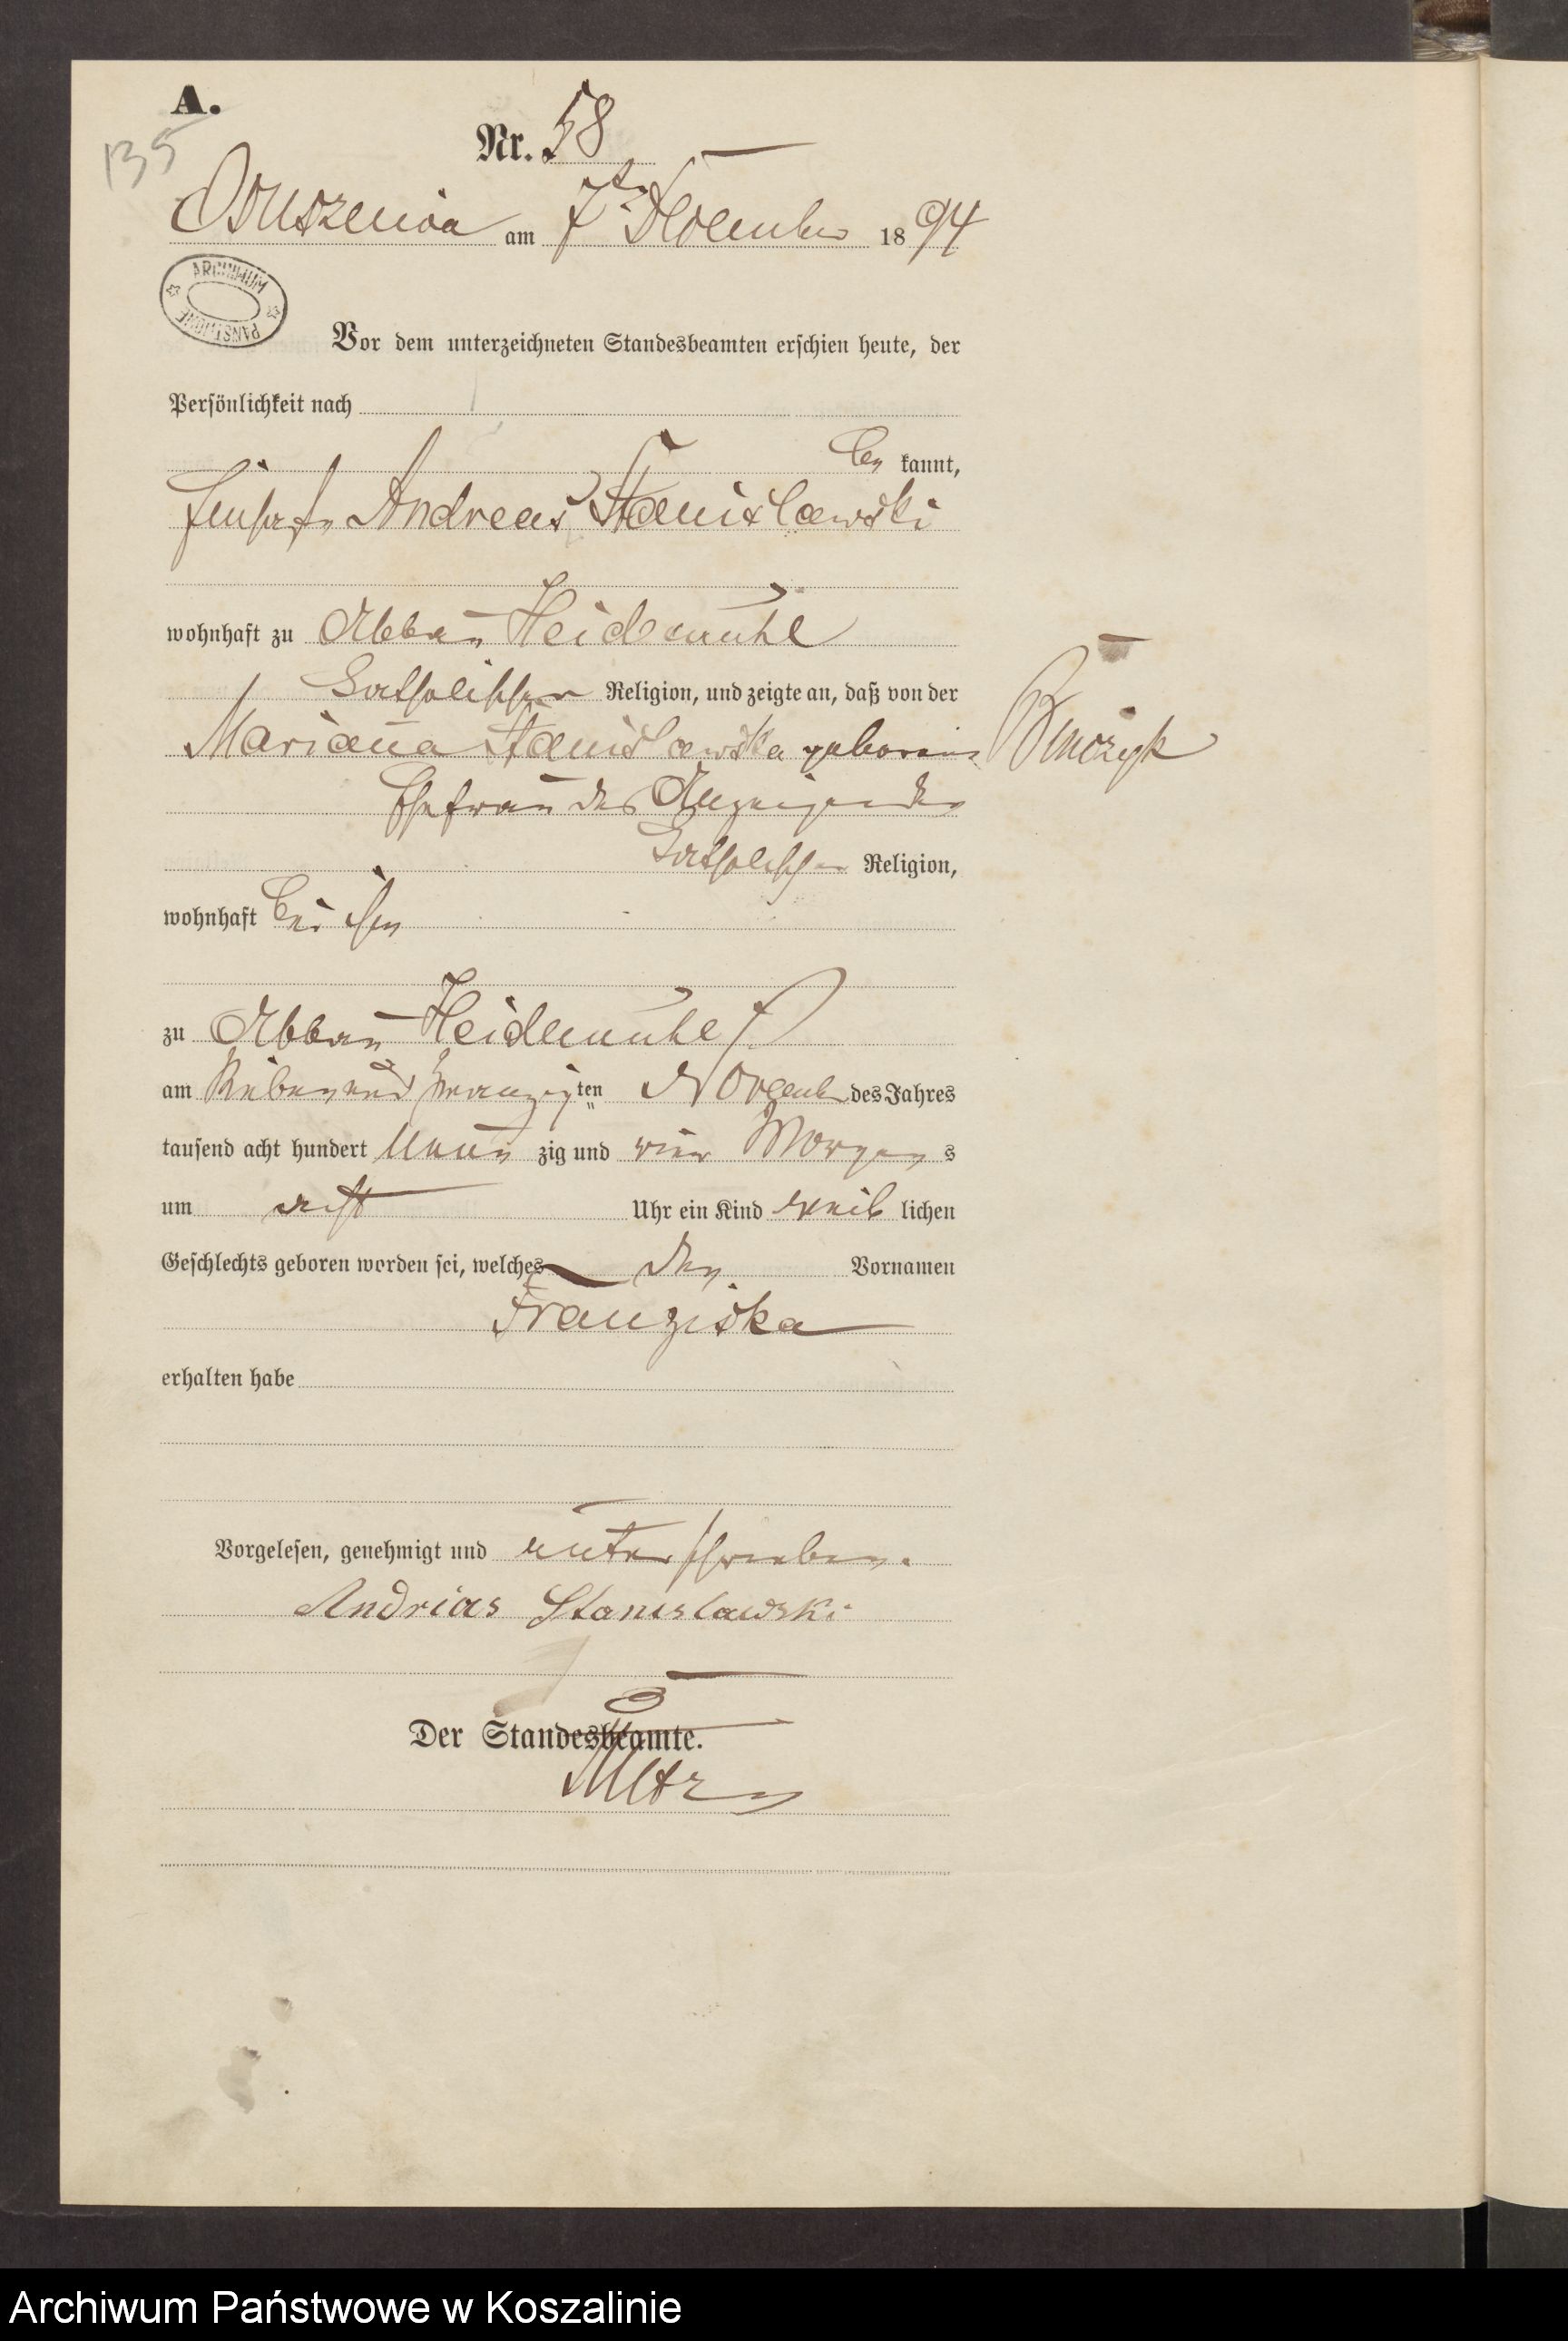 A.
135
Nr. 58
Ossuszenica am 7ten December 1894
ARCHIWUM PAŃSTWOWE
Vor dem unterzeichneten Standesbeamten erschien heute, der
Persönlichkeit nach
be kannt,
Andreas Stanislawski
wohnhaft zu Abbau Heidemühl
katholischer Religion, und zeigte an, daß von der
Marianna Stanislawska geborene Binczyk
Ehefrau des Anzeigenden
katholischer Religion,
wohnhaft bei ihm
zu Abbau Heidemühl
am siebenundzwanzigten November des Jahres
tausend acht hundert neun zig und vier Morgens
um acht Uhr ein Kind weib lichen
Geschlechts geboren worden sei, welches den Vornamen
Franziska
erhalten habe
Vorgelesen, genehmigt und unterschrieben.
Andrias Stanislawski
Der Standesbeamte.
Archiwum Państwowe w Koszalinie